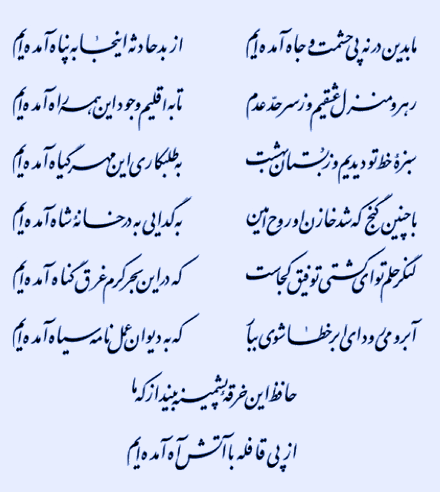 ما بدین در نه پی حشمت و جاه آمده‌ایم از بد حادثه اینجا به پناه آمده‌ایم
رهرو منزل عشقیم و ز سر حد عدم تا به اقلیم وجود این همه راه آمده‌ایم
سبزهٔ خط تو دیدیم و ز بستان بهشت به طلبکاری این مهر گیاه آمده‌ایم
با چنین گنج که شد خازن او روح امین به گدایی به در خانهٔ شاه آمده‌ایم
لنگر حلم تو ای کشتی توفیق کجاست که در این بحر کرم غرق گناه آمده‌ایم
آبرو می‌رود ای ابر خطا شوی ببار که به دیوان عمل نامه سیاه آمده‌ایم
حافظ این خرقهٔ پشمینه بینداز که ما
از پی قافله با آتش آه آمده‌ایم